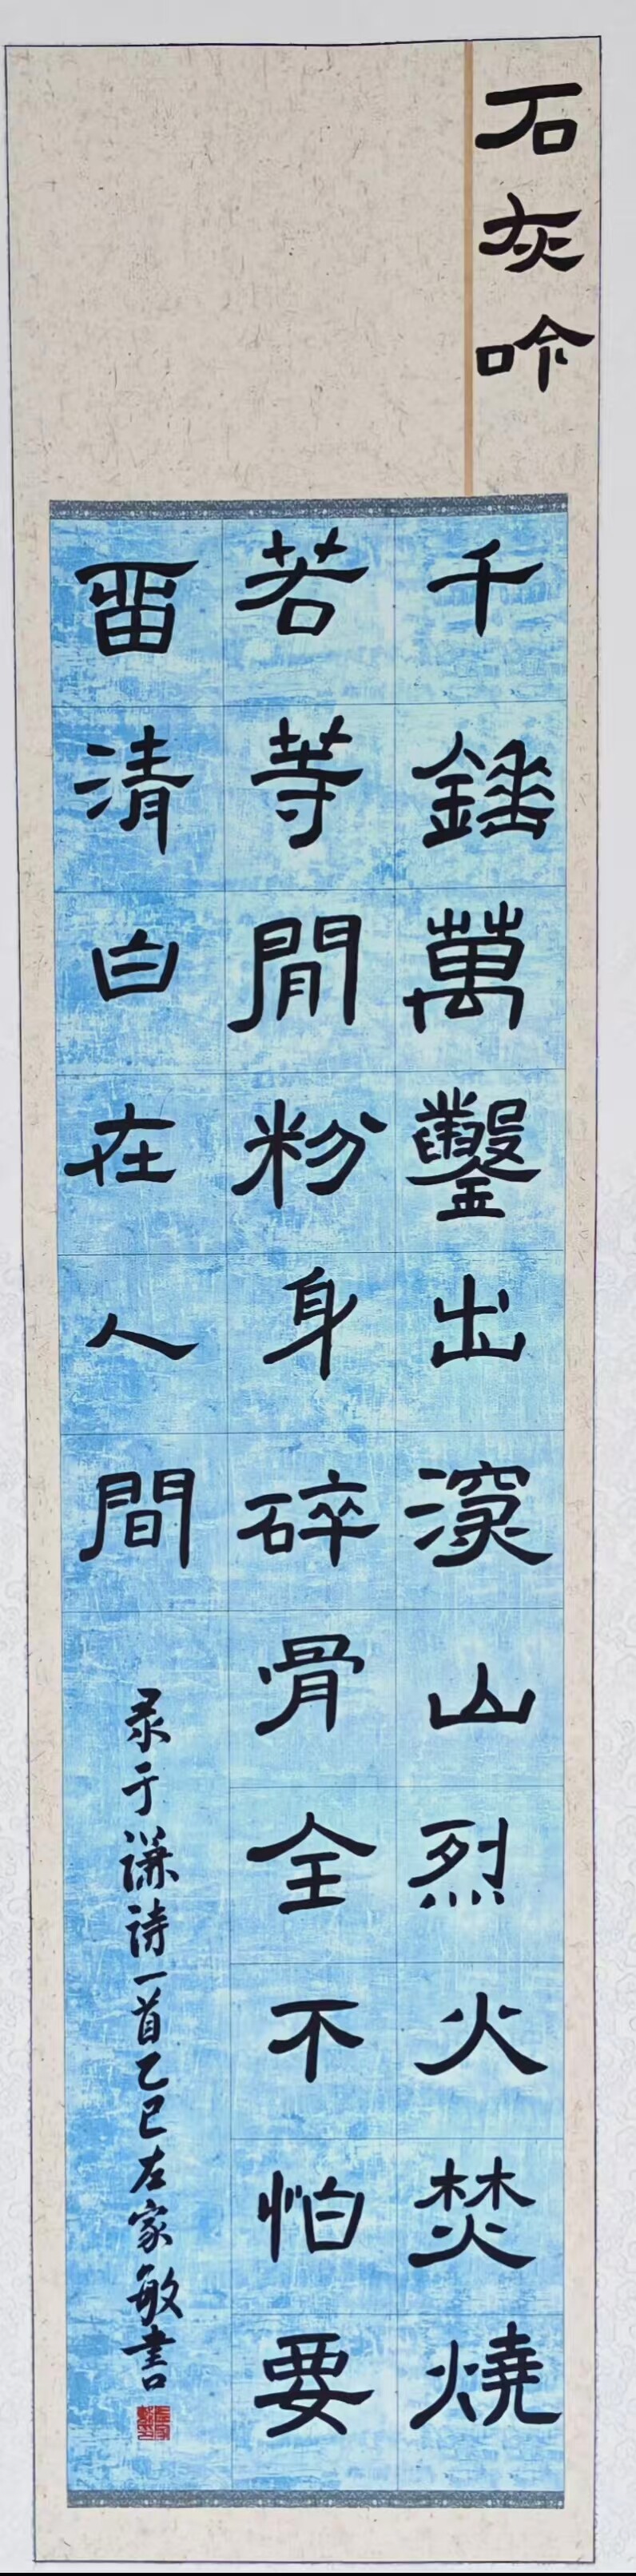 石灰吟
千錘萬鑿出深山烈火焚燒
若等閒粉身碎骨全不怕要
畱清白在人間
录于谦诗一首乙巳左家敏書